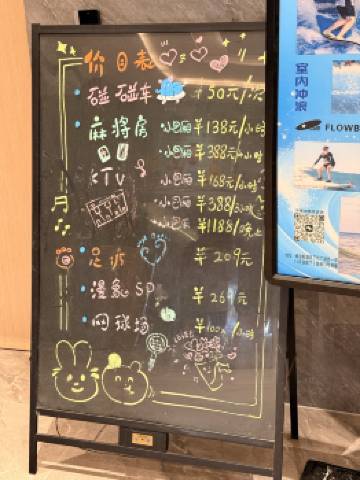 价目表
碰碰车 ¥50元/次
麻将房 ·小包厢 ¥138元/小时
·小包厢 ¥388元/4小时
KTV ·小包厢 ¥168元/小时
·小包厢 ¥388/3小时
·小包厢 ¥1188/晚上
足疗 ¥209元
漫氧SPA ¥269元
网球场 ¥100元/小时
室内冲浪
FLOWB